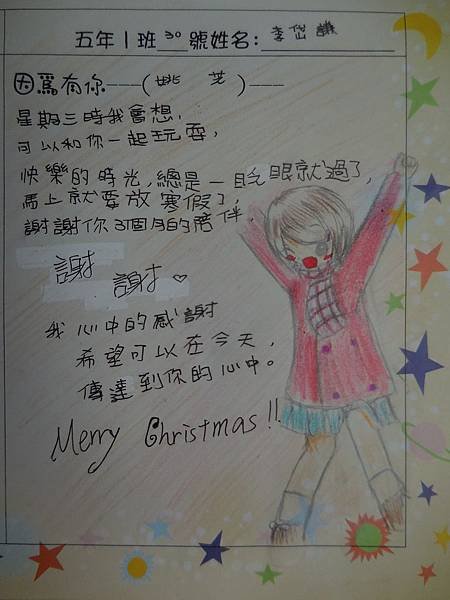 五年1班 30 號姓名: 李岱謙
因爲有你---(姚 芝)---
星期三時我會想,
可以和你一起玩耍,
快樂的時光,總是一眨眼就過了,
馬上就要放寒假了,
謝謝你3個月的陪伴,
謝
謝♡
我心中的感謝
希望可以在今天,
傳達到你的心中。
Merry Christmas!!